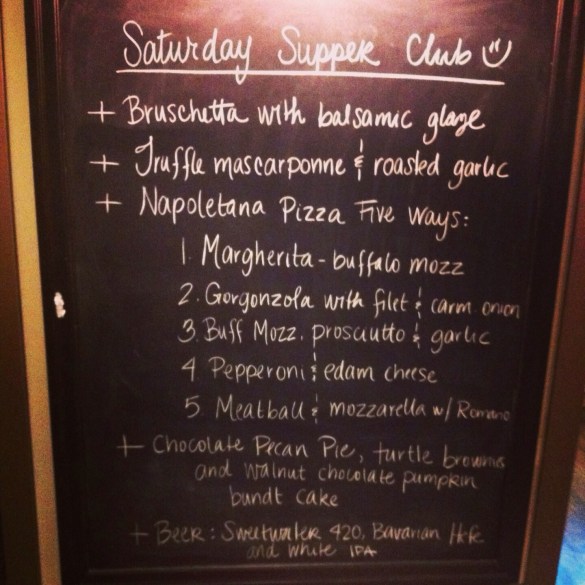 Saturday Supper Club
+ Bruschetta with balsamic glaze
+ Truffle mascarponne & roasted garlic
+ Napoletana Pizza Five Ways:
1. Margherita - buffalo mozz
2. Gorgonzola with filet & carm onion
3. Buff Mozz. prosciutto & garlic
4 Pepperoni & edam cheese
5 Meatball & mozzarella w/ Romano
+ Chocolate Pecan Pie, turtle brownies
and walnut chocolate pumpkin
bundt cake
+ Beer: Sweetwater 420, Bavarian Hefe
and white IPA